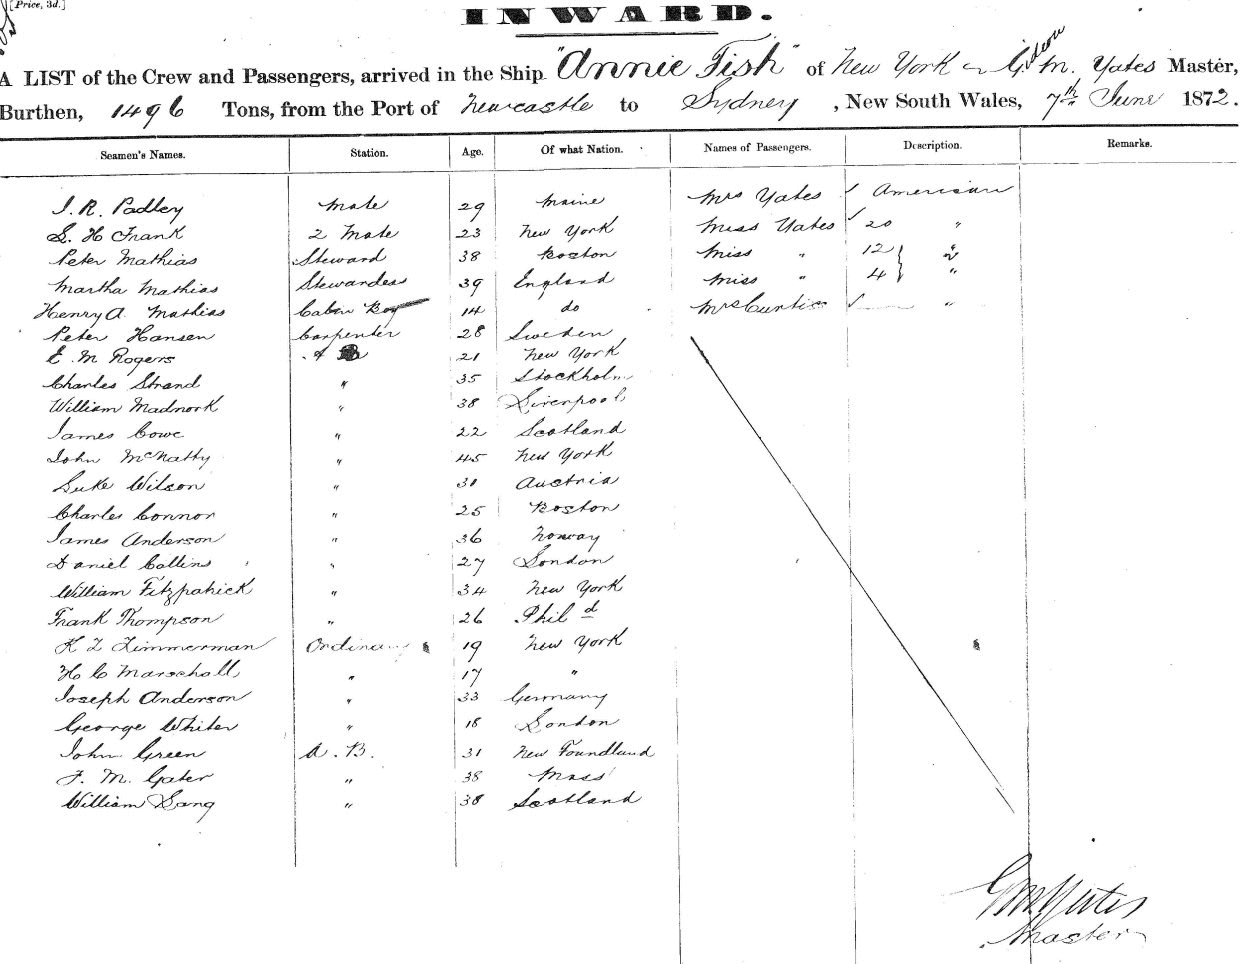 [Price, 3d.]
INWARD.
A LIST of the Crew and Passengers, arrived in the Ship "Annie Fish" of New York Gideon M. Yates Master,
Burthen, 1496 Tons, from the Port of Newcastle to Sydney, New South Wales, 7th June 1872.
Seamen's Names. Station. Age. Of what Nation. Names of Passengers. Description. Remarks.
J. R. Padley Mate 29 Maine Mrs Yates American
S. H Frank 2 Mate 23 New York Miss Yates 20 "
Peter Mathias Steward 38 Boston Miss " 12 "
Martha Mathias Stewardess 39 England Miss " 4 "
Henry A. Mathias Cabin Boy 14 do Mrs Curtiss "
Peter Hansen Carpenter 28 Sweden
E. M Rogers A B 21 New York
Charles Strand " 35 Stockholm
William Madnork " 38 Liverpool
James Cowe 22 Scotland
John McNatty " 45 New York
Luke Wilson " 31 Austria
Charles Connor " 25 Boston
James Anderson " 36 Norway
Daniel Collins " 27 London
William Fitzpatrick " 34 New York
Frank Thompson " 26 Phild
K Z Zimmerman Ordinary 19 New York
H C Marschall " 17 "
Joseph Anderson " 33 Germany
George Whiter " 18 London
John Green A. B. 31 New Foundland
F. M. Gater " 38 Mass
William Lang " 38 Scotland
G M Yates
Master